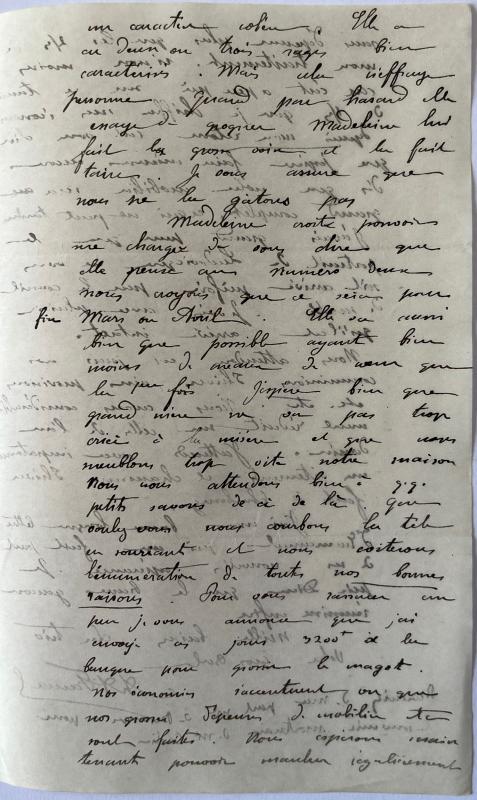 un caractère colère. Elle a
eu deux ou trois rages bien
caractérisées. Mais cela n'effraye
personne. Quand par hasard elle
essaye de grogner Madeleine lui
fait la grosse voix et la fait
taire. Je vous assure que
nous ne la gâtons pas
Madeleine croit pouvoir
me charge de vous dire que
elle pense au numéro deux
nous croyons que ce sera pour
fin Mars ou Avril. Elle va aussi
bien que possible ayant bien
moins de maux de cœur que
la fois. J'espère bien que
grand mère ne va pas trop
crier à la misère et que nous
meublons trop vite notre maison
Nous nous attendons bien à q.q.
petits savons de ci de là que
voulez vous nous courbons la tête
en souriant et nous éviterons
l'énumération de toutes nos bonnes
raisons. Pour vous rassurer un
peu je vous annonce que j'ai
envoyé ces jours 3200f à la
banque pour grossir le magot.
Nos économies s'accentuent vu que
nos grosses dépenses de mobilier etc
sont faites. Nous espérons main
tenant pouvoir marcher régulièrement